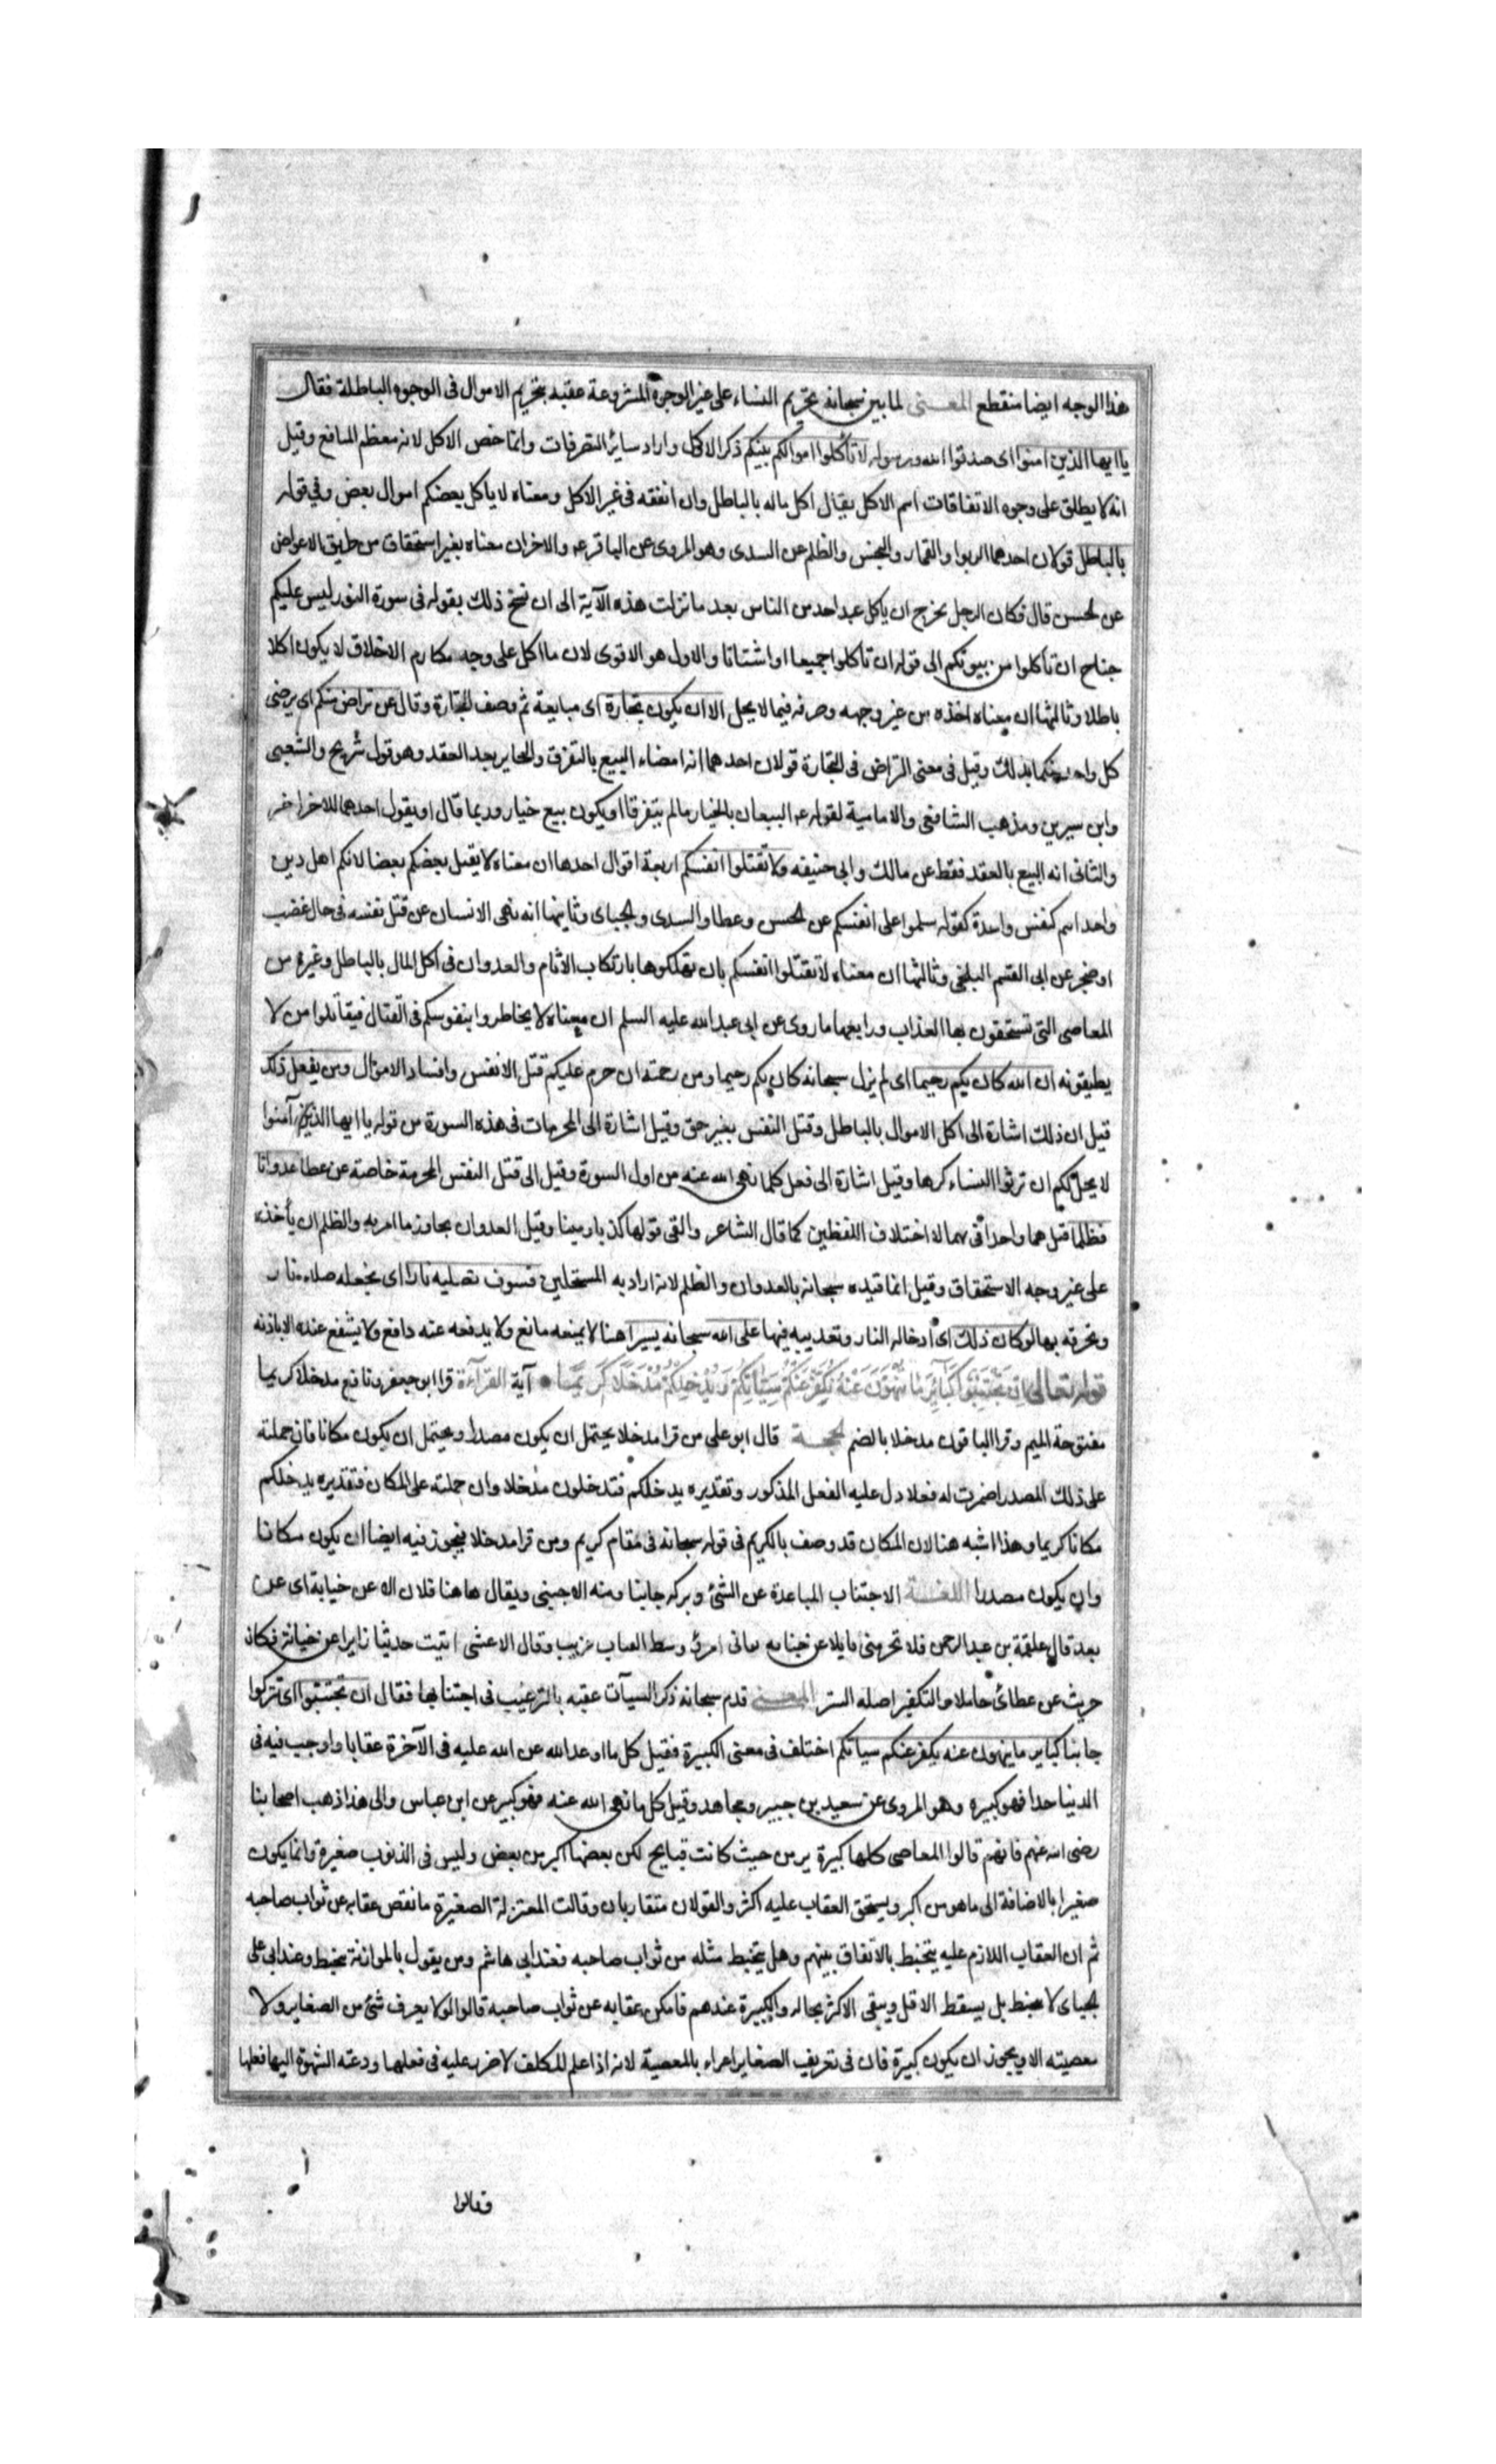 هذا الوجه ايضا منقطع المعنى لما بين سبحانه تحريم النساء على غير الوجوه المشروعة عقبه بتحريم الاموال فى الوجوه الباطلة فقال
يا ايها الذين امنوا اى صدقوا الله ورسوله لا تأكلوا اموالكم بينكم ذكر الاكل واراد سائر التصرفات وانما خص الاكل لانه معظم المنافع وقيل
انه لا يطلق على وجوه الانفاقات اسم الاكل يقال اكل ماله بالباطل وان انفقه فى غير الاكل ومعناه لا يأكل بعضكم اموال بعض وفى قوله
بالباطل قولان احدهما الربوا والقمار والبخس والظلم عن السدى وهو المروى عن الباقر ع والاخر ان معناه بغير استحقاق من طريق الاعواض
عن الحسن قال فكان الرجل يحرج ان ياكل عند احد من الناس بعد ما نزلت هذه الآية الى ان نسخ ذلك بقوله فى سورة النور ليس عليكم
جناح ان تأكلوا من بيوتكم الى قوله ان تأكلوا جميعا او اشتاتا والاول هو الاقوى لان ما اكل على وجه مكارم الاخلاق لا يكون اكلا
باطلا وثالثها ان معناه اخذه من غير وجهه وصرفه فيما لا يحل الا ان يكون تجارة اى مبايعة ثم وصف التجارة وقال عن تراض منكم اى يرضى
كل واحد منكما بذلك وقيل فى معنى التراض فى التجارة قولان احدهما انه امضاء البيع بالتفرق والتخاير بعد العقد وهو قول شريح والشعبى
وابن سيرين ومذهب الشافعى والامامية لقوله ع البيعان بالخيار مالم يتفرقا او يكون بيع خيار وربما قال او يقول احدهما للاخر اختر
والثانى انه البيع بالعقد فقط عن مالك وابى حنيفه ولا تقتلوا انفسكم اربعة اقوال احدها ان معناه لا يقتل بعضكم بعضا لانكم اهل دين
واحد اسم كنفس واحدة كقوله سلموا على انفسكم عن الحسن وعطا والسدى والجباى وثانيها انه نهى الانسان عن قتل نفسه فى حال غضب
او ضجر عن ابى القسم البلخى وثالثها ان معناه لا تقتلوا انفسكم بان تهلكوها بارتكاب الاثام والعدوان فى اكل المال بالباطل وغيره من
المعاصى التى تستحقون بها العذاب ورابعها ما روى عن ابى عبد الله عليه السلم ان معناه لا يخاطروا بنفوسكم فى القتال فيقاتلوا من لا
يطيقونه ان الله كان بكم رحيما اى لم يزل سبحانه كان بكم رحيما ومن رحمته ان حرم عليكم قتل الانفس وافساد الاموال ومن يفعل ذلك
قيل ان ذلك اشارة الى اكل الاموال بالباطل وقتل النفس بغير حق وقيل اشارة الى المحرمات فى هذه السورة من قوله يا ايها الذين آمنوا
لا يحل لكم ان ترثوا النساء كرها وقيل اشارة الى فعل كلما نهى الله عنه من اول السورة وقيل الى قتل النفس المحرمة خاصة عن عطا عدوانا
وظلما قيل هما واحد اتى بهما لاختلاف اللفظين كما قال الشاعر والقى قولها كذبا ومينا وقيل العدوان تجاوز ما امر به والظلم ان يأخذه
على غير وجه الاستحقاق وقيل انما قيده سبحانه بالعدوان والظلم لانه اراد به المستحلين فسوف نصليه نارا اى نجعله صلاء نار
ونحرقه بها وكان ذلك اى ادخاله النار وتعذيبه فيها على الله سبحانه يسيرا هنا لا يمنعه مانع ولا يدفعه عنه دافع ولا يشفع عنده الا باذنه
قوله تعالى اِن تَجْتَنِبُوا كَبَآئِرَ مَا تُنْهَوْنَ عَنْهُ نُكَفِّرْ عَنْكُمْ سَيِّئَاتِكُمْ وَنُدْخِلْكُمْ مُدْخَلًا كَرِيمًا آية القرآءة قرا ابو جعفر ونافع مدخلا كريما
مفتوحة الميم وقرا الباقون مدخلا بالضم الحجة قال ابو على من قرا مدخلا يحتمل ان يكون مصدرا ويحتمل ان يكون مكانا فان حملته
على ذلك المصدر اضمرت له فعلا دل عليه الفعل المذكور وتقديره يدخلكم فتدخلون مدخلا وان حملته على المكان فتقديره يدخلكم
مكانا كريما وهذا اشبه هنا لان المكان قد وصف بالكريم فى قوله سبحانه فى مقام كريم ومن قرا مدخلا فيجوز فيه ايضا ان يكون مكانا
وان يكون مصدرا اللغة الاجتناب المباعدة عن الشئ وتركه جانبا ومنه الاجنبى ويقال ها هنا فلان الا عن خيابة اى عن
بعد قال علقمة بن عبد الرحمن فلا تحرمنى نايلا عن جنابه فانى امرؤ وسط القباب غريب وقال الاعشى اتيت حديثا زايرا عن خيانة فكان
حريث عن عطائى حاملا والتكفير اصله الستر المعنى قدم سبحانه ذكر السيآت عقبه بالترغيب فى اجتنابها فقال ان تجتنبوا اى تتركوا
جانبا كباير ما ينهون عنه يكفر عنكم سيآتكم اختلف فى معنى الكبيرة فقيل كل ما اوعد الله عن الله عليه فى الآخرة عقابا واوجب فيه فى
الدنيا حدا فهو كبيره وهو المروى عن سعيد بن جبير ومجاهد وقيل كل ما نهى الله عنه فهو كبير عن ابن عباس والى هذا ذهب اصحابنا
رضى الله عنهم فانهم قالوا المعاصى كلها كبيرة من حيث كانت قبايح لكن بعضها اكبر من بعض وليس فى الذنوب صغيرة وانما يكون
صغيرا بالاضافة الى ماهو من اكبر ويستحق العقاب عليه اكثر والقولان متقاربان وقالت المعتزلة الصغيرة ما نقص عقابه عن ثواب صاحبه
ثم ان العقاب اللازم عليه يتحبط بالاتفاق بينهم وهل يتحبط مثله من ثواب صاحبه فعند ابى هاشم ومن يقول بالموازنة يحبط وعند ابى على
الجباى لا يحبط بل يسقط الاقل ويبقى الاكثر بحاله والكبيرة عندهم ما يكبر عقابه عن ثواب صاحبه قالوا ولا يعرف شئ من الصغاير ولا
معصيته الا ويجوز ان يكون كبيرة فان فى تعريف الصغاير اغراء بالمعصية لانه اذا علم المكلف لا ضرر عليه فى فعلها ودعته الشهوة اليها فعلها
فقالوا